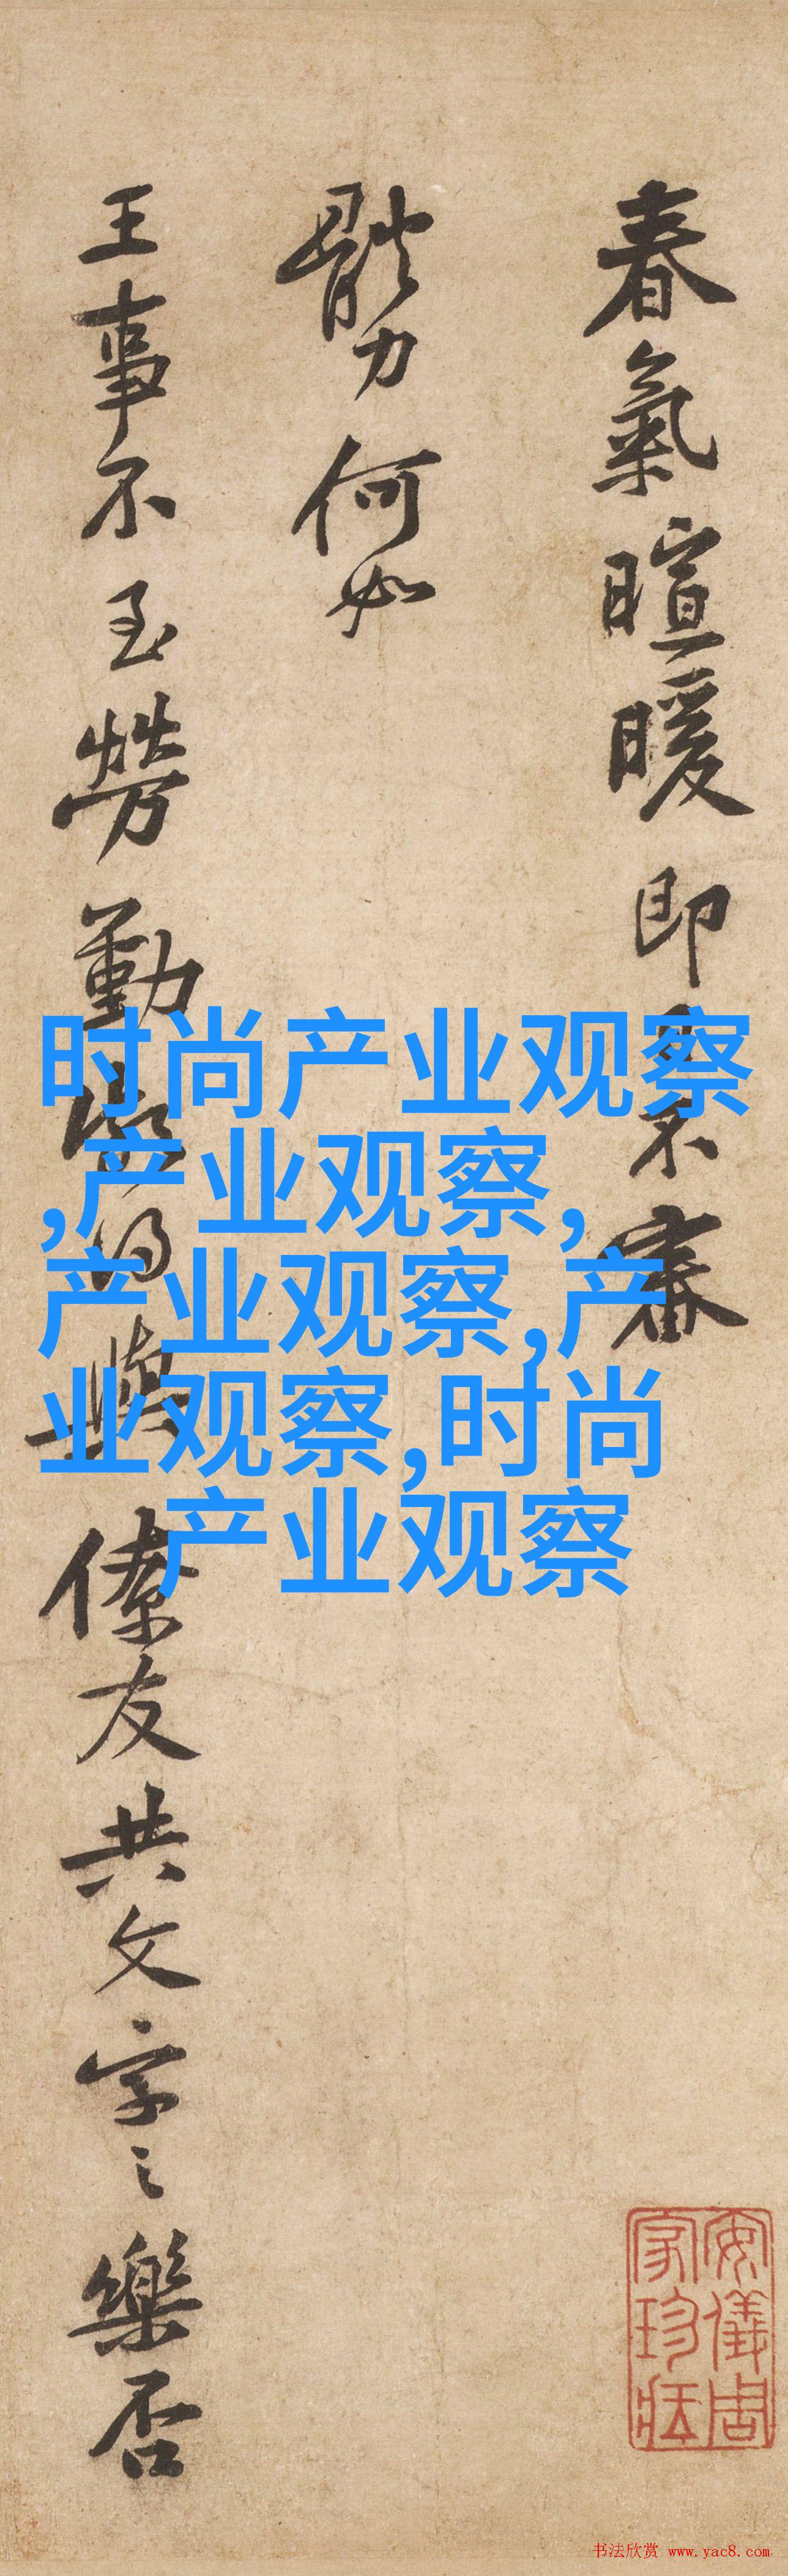 春氣暄暖即日不審
體力何如
王事不至勞勤
僚友共文字之樂否
时尚产业观察
,产业观察,
产业观察,产
业观察,时尚
产业观察
安儀周
家珍藏
书法欣赏 www.yac8.com